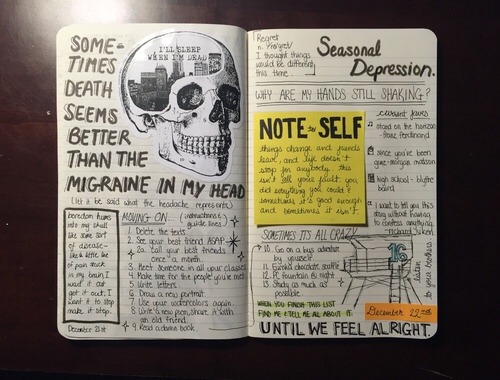 SOME-
TIMES
DEATH
SEEMS
BETTER
THAN THE
MIGRAINE IN MY HEAD
I'LL SLEEP
WHEN I'M DEAD
(let it be said what the headache represents)
boredom hums
into my skull
like some sort
of disease-
like a little bit
of pain stuck
in my brain. I
want it out
get it out. I
want it to stop
make it stop.
December 21st
MOVING ON (instructions & guide lines)
1. Delete the texts
2. See your best friend ASAP.
2a. Call your best friends
once a month.
3. Meet someone in all your classes
4. Make time for the people you've met
5. Write letters
6. Draw a new portrait
7. Use your watercolors again.
8. Write a new poem, share it with
an old friend.
9. Read a damn book.
Regret
n. Regret
I thought things
would be different
this time
Seasonal
Depression.
WHY ARE MY HANDS STILL SHAKING?
NOTE to SELF
things change and friends
leave, and life doesn't
stop for anybody. this
isn't all your fault, you
did everything you could &
sometimes it's good enough
and sometimes it isn't.
current faves
stood on the horizon
- franz ferdinand
since you've been
gone - morgan matson
high school - blythe
baird
I want to tell you this
story without having
to confess anything
- richard siken
SOMETIMES IT'S ALL CRAZY
10. Go on a bus adventure
by yourself.
11. chocolate
12. PC fountain @ night
13. Study as much as
possible.
16
listen
to your brothers
WHEN YOU FINISH THIS LIST
FIND ME & TELL ME ALL ABOUT IT.
December 22nd
UNTIL WE FEEL ALRIGHT.